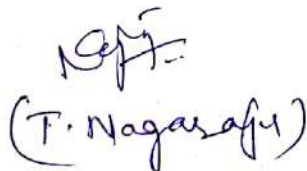 (T. Nagaraju)